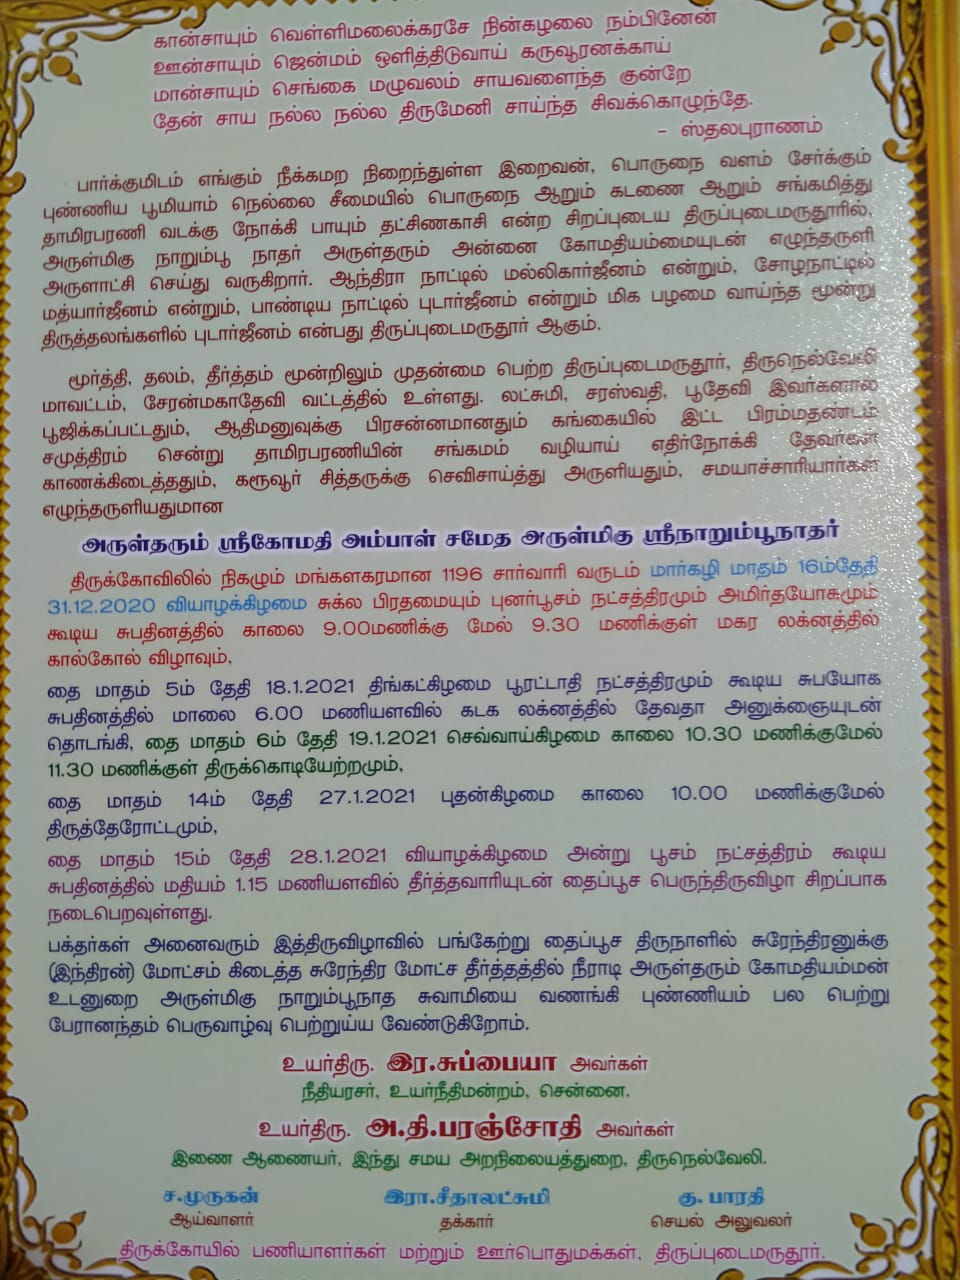 கான்சாயும் வெள்ளிமலைக்கரசே நின்கழலை நம்பினேன்
ஊன்சாயும் ஜென்மம் ஒளித்திடுவாய் கருவூரனக்காய்
மான்சாயும் செங்கை மழுவலம் சாயவளைந்த குன்றே
தேன் சாய நல்ல நல்ல திருமேனி சாய்ந்த சிவக்கொழுந்தே.
- ஸ்தலபுராணம்
பார்க்குமிடம் எங்கும் நீக்கமற நிறைந்துள்ள இறைவன், பொருநை வளம் சேர்க்கும்
புண்ணிய பூமியாம் நெல்லை சீமையில் பொருநை ஆறும் கடணை ஆறும் சங்கமித்து
தாமிரபரணி வடக்கு நோக்கி பாயும் தட்சிணகாசி என்ற சிறப்புடைய திருப்புடைமருதூரில்,
அருள்மிகு நாறும்பூ நாதர் அருள்தரும் அன்னை கோமதியம்மையுடன் எழுந்தருளி
அருளாட்சி செய்து வருகிறார். ஆந்திரா நாட்டில் மல்லிகார்ஜீனம் என்றும், சோழநாட்டில்
மத்யார்ஜீனம் என்றும், பாண்டிய நாட்டில் புடார்ஜீனம் என்றும் மிக பழமை வாய்ந்த மூன்று
திருத்தலங்களில் புடார்ஜீனம் என்பது திருப்புடைமருதூர் ஆகும்.
மூர்த்தி, தலம், தீர்த்தம் மூன்றிலும் முதன்மை பெற்ற திருப்புடைமருதூர், திருநெல்வேலி
மாவட்டம், சேரன்மகாதேவி வட்டத்தில் உள்ளது. லட்சுமி, சரஸ்வதி, பூதேவி இவர்களால்
பூஜிக்கப்பட்டதும், ஆதிமனுவுக்கு பிரசன்னமானதும் கங்கையில் இட்ட பிரம்மதண்டம்
சமுத்திரம் சென்று தாமிரபரணியின் சங்கமம் வழியாய் எதிர்நோக்கி தேவர்கள்
காணக்கிடைத்ததும், கருவூர் சித்தருக்கு செவிசாய்த்து அருளியதும், சமயாச்சாரியார்கள்
எழுந்தருளியதுமான
அருள்தரும் ஸ்ரீகோமதி அம்பாள் சமேத அருள்மிகு ஸ்ரீநாறும்பூநாதர்
திருக்கோவிலில் நிகழும் மங்களகரமான 1196 சார்வாரி வருடம் மார்கழி மாதம் 16ம்தேதி
31.12.2020 வியாழக்கிழமை சுக்ல பிரதமையும் புனர்பூசம் நட்சத்திரமும் அமிர்தயோகமும்
கூடிய சுபதினத்தில் காலை 9.00மணிக்கு மேல் 9.30 மணிக்குள் மகர லக்னத்தில்
கால்கோல் விழாவும்,
தை மாதம் 5ம் தேதி 18.1.2021 திங்கட்கிழமை பூரட்டாதி நட்சத்திரமும் கூடிய சுபயோக
சுபதினத்தில் மாலை 6.00 மணியளவில் கடக லக்னத்தில் தேவதா அனுக்ஞையுடன்
தொடங்கி, தை மாதம் 6ம் தேதி 19.1.2021 செவ்வாய்கிழமை காலை 10.30 மணிக்குமேல்
11.30 மணிக்குள் திருக்கொடியேற்றமும்,
தை மாதம் 14ம் தேதி 27.1.2021 புதன்கிழமை காலை 10.00 மணிக்குமேல்
திருத்தேரோட்டமும்,
தை மாதம் 15ம் தேதி 28.1.2021 வியாழக்கிழமை அன்று பூசம் நட்சத்திரம் கூடிய
சுபதினத்தில் மதியம் 1.15 மணியளவில் தீர்த்தவாரியுடன் தைப்பூச பெருந்திருவிழா சிறப்பாக
நடைபெறவுள்ளது.
பக்தர்கள் அனைவரும் இத்திருவிழாவில் பங்கேற்று தைப்பூச திருநாளில் சுரேந்திரனுக்கு
(இந்திரன்) மோட்சம் கிடைத்த சுரேந்திர மோட்ச தீர்த்தத்தில் நீராடி அருள்தரும் கோமதியம்மன்
உடனுறை அருள்மிகு நாறும்பூநாத சுவாமியை வணங்கி புண்ணியம் பல பெற்று
பேரானந்தம் பெருவாழ்வு பெற்றுய்ய வேண்டுகிறோம்.
உயர்திரு. இர.சுப்பையா அவர்கள்
நீதியரசர், உயர்நீதிமன்றம், சென்னை.
உயர்திரு. அ.தி.பரஞ்சோதி அவர்கள்
இணை ஆணையர், இந்து சமய அறநிலையத்துறை, திருநெல்வேலி.
ச.முருகன் இரா.சீதாலட்சுமி கு. பாரதி
ஆய்வாளர் தக்கார் செயல் அலுவலர்
திருக்கோயில் பணியாளர்கள் மற்றும் ஊர்பொதுமக்கள், திருப்புடைமருதூர்.